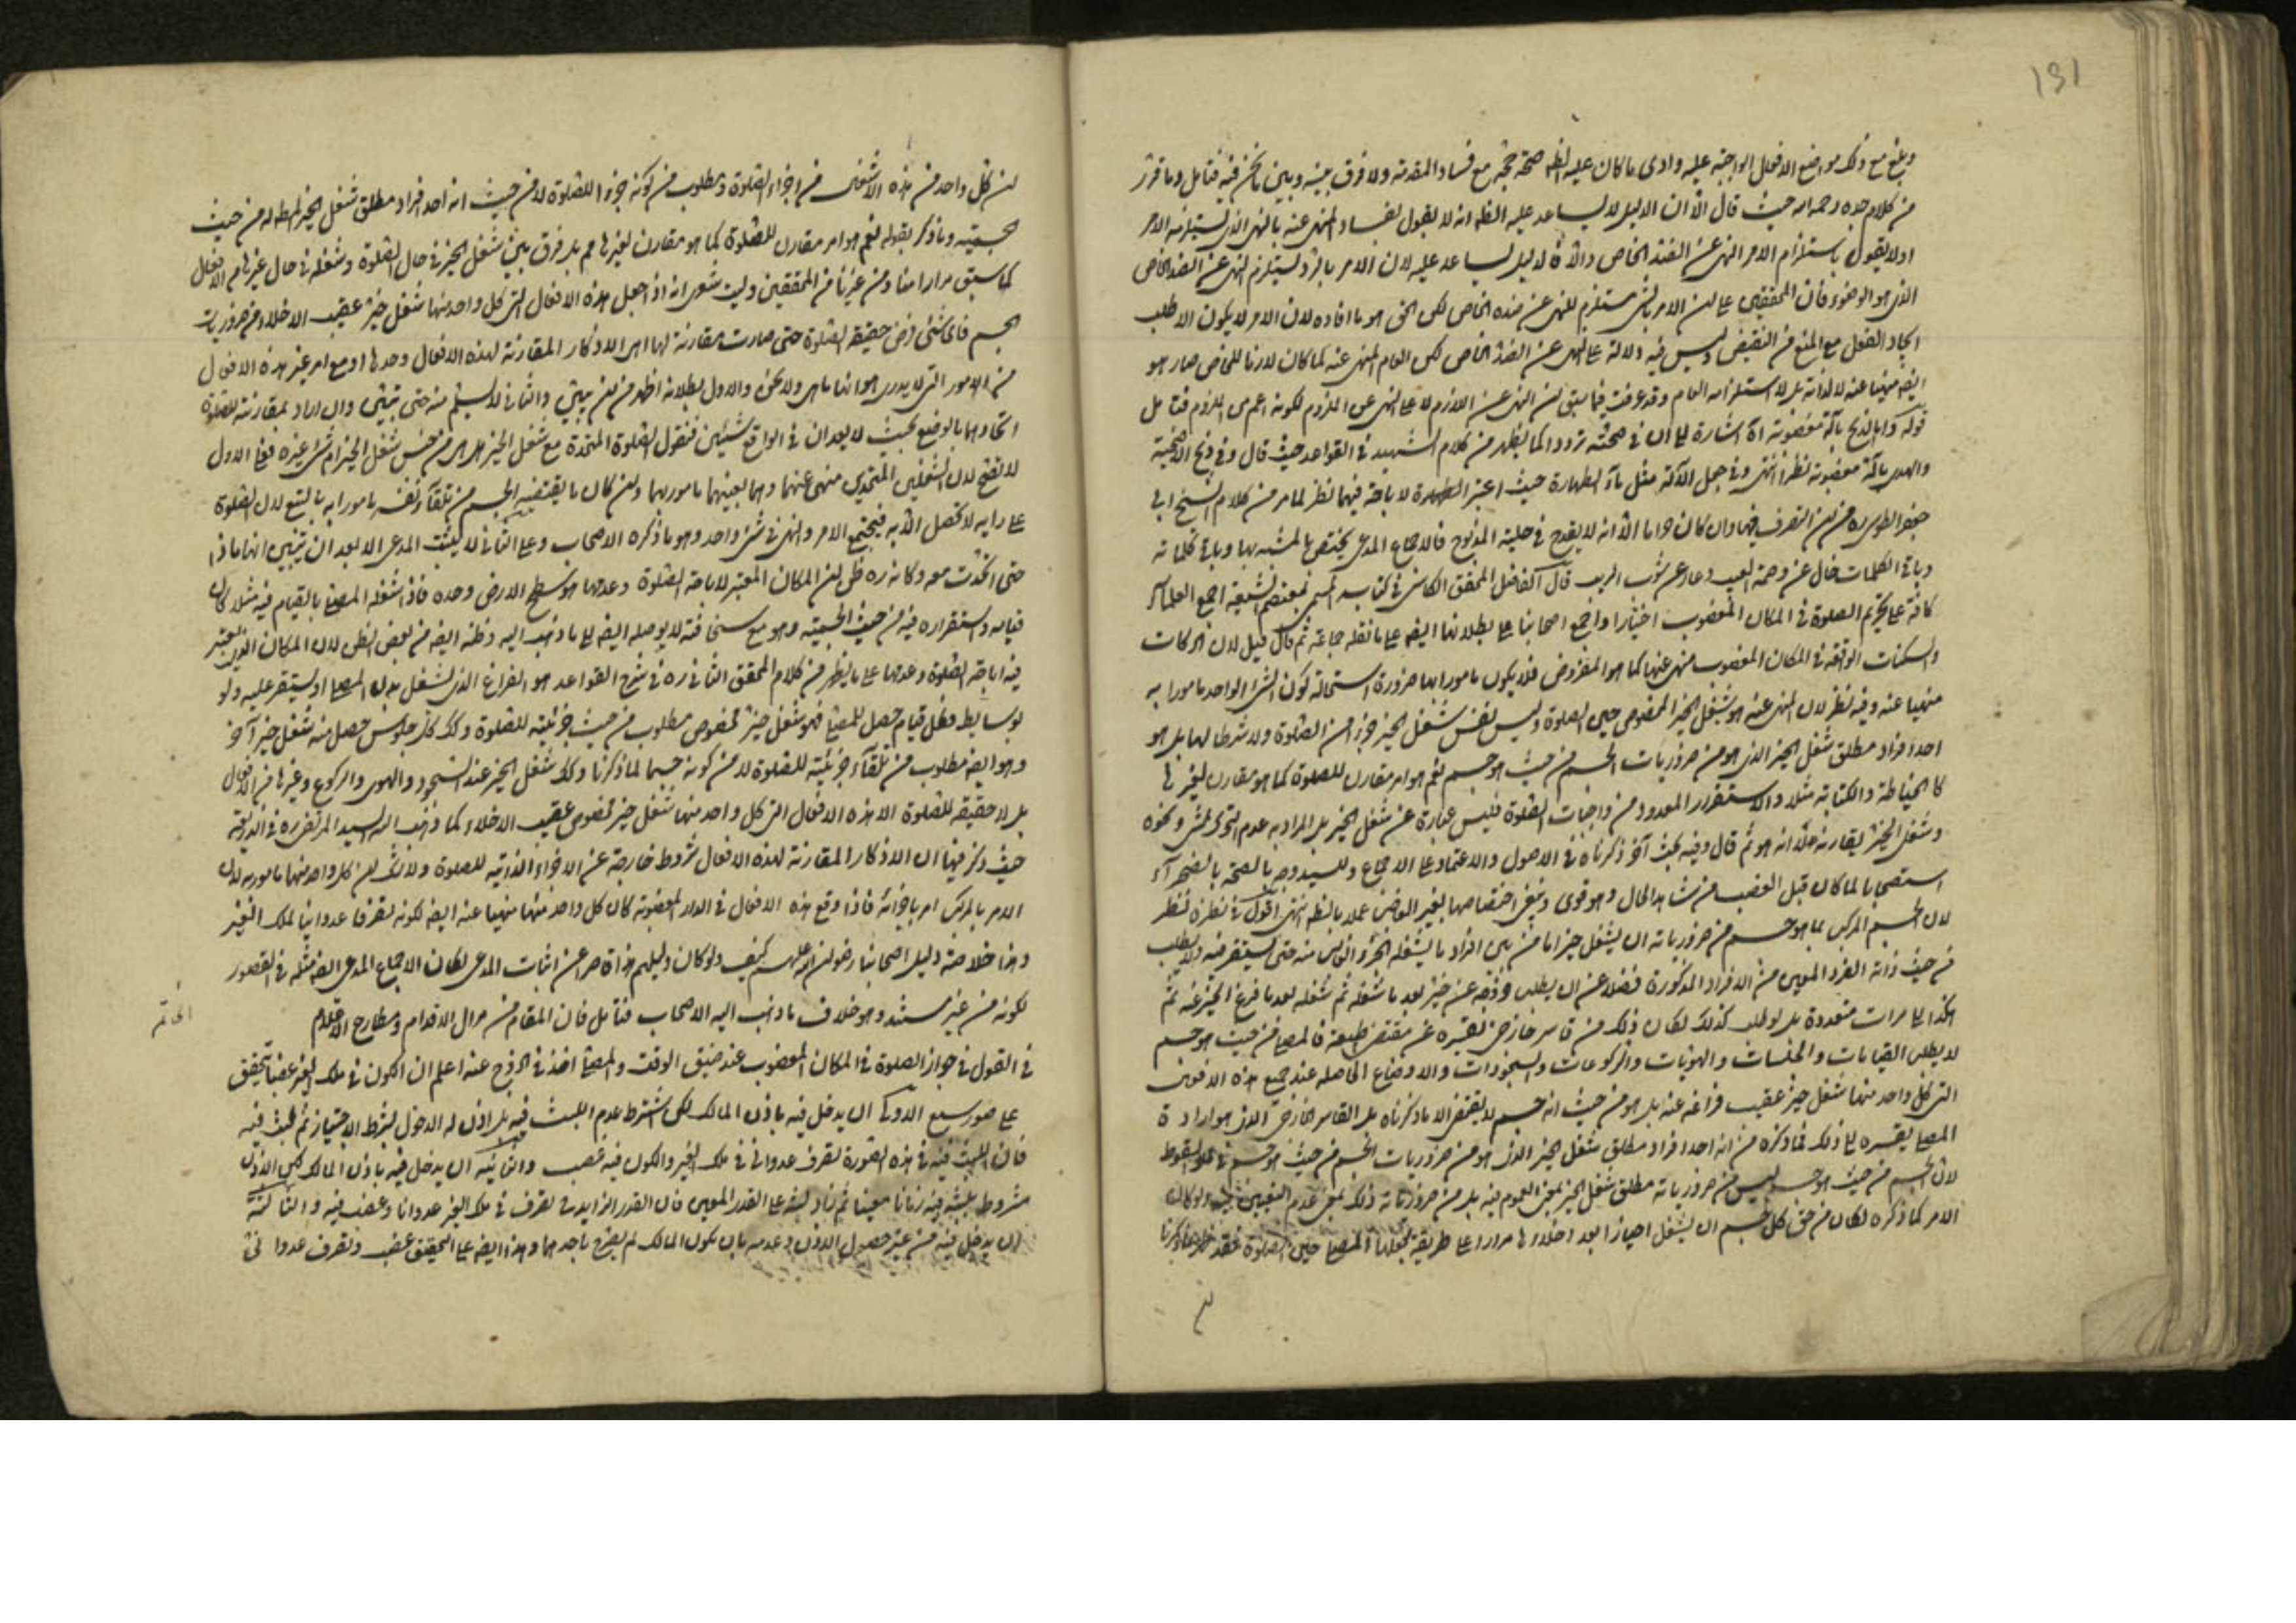 131
وبلغ مع ذلك مواضع الافعال الواجبة عليه وادى ما كان عليه الظ صحة حجه مع فساد المقدمة ولا فرق بينه وبين ما نحن فيه فتامل وما قرر
من كلام جده رحمه الله حيث قال الا ان الدليل لا يساعد عليه الظ انه لا يقول بفساد المنهى عنه بالنهى الذى يستلزمه الامر
اولا يقول باستلزام الامر النهى عن الضد الخاص والا فالدليل يساعد عليه لان الامر بالرد يستلزم النهى عن الضد الخاص
الذى هو الوضوء فان المحققين على ان الامر بالشى مستلزم للنهى عن ضده الخاص لكن الحق هو ما افاده لان الامر لا يكون الا طلب
ايجاد الفعل مع المنع من النقيض وليس فيه دلالة على النهى عن الضد الخاص لكن العام المنهى عنه لما كان لازما للخاص صار هو
ايضه منهيا عنه لا لذاته بل لاستلزامه العام وقد عرفت فيما سبق ان النهى عن اللازم لا على النهى عن الملزوم لكونه اعم من الملزوم فتامل
قوله واما الذبح بآلة مغصوبة اه اشارة الى ان فى صحته ترددا كما يظهر من كلام الشهيد فى القواعد حيث قال وفى ذبح الاضحية
والهدى بآلة مغصوبة نظر انتهى وفى جعل الآلة مثل ماء الطهارة حيث اعتبر الطهارة لاباحة فيهما نظر لما مر من كلام الشيخ ابى
جعفر الطوسى ره من ان التصرف فيها وان كان حراما الا انه لا يقدح فى حلية المذبوح فالاجماع المدعى يختص بالمشبه بها وباقى كلماته
وباقى الكلمات خال عن وصمة العيب وعار عن شوب الريب قال الفاضل المحقق الكاشى فى كتابه المسمى بمعتصم الشيعة اجمع العلماء
كافة على تحريم الصلوة فى المكان المغصوب اختيارا واجمع اصحابنا على بطلانها ايضه على ما نقله جماعة ثم قال قيل لان الحركات
والسكنات الواقعة فى المكان المغصوب منهى عنها كما هو المفروض فلا يكون مامورا بها ضرورة استحالة كون الشئ الواحد مامورا به
منهيا عنه وفيه نظر لان المنهى عنه هو شغل الحيز المخصوص حين الصلوة وليس نفس شغل الحيز جزءا من الصلوة ولا شرطا لها بل هو
احد افراد مطلق شغل الحيز الذى هو من ضروريات الجسم من حيث هو جسم نعم هو امر مقارن للصلوة كما هو مقارن لغيرها
كالخياطة والكتابة مثلا والاستقرار المعدود من واجبات الصلوة فليس عبارة عن شغل الحيز بل المراد به عدم التحرك بمشى ونحوه
وشغل الحيز يقارنه لا انه هو ثم قال وفيه بحث آخر ذكرناه فى الاصول والاعتماد على الاجماع وللسيد وجه بالصحة بالصحراء
استصحابا لما كان قبل الغصب من شاهد الحال وهو قوى وينبغى اختصاصها بغير الغاصب عملا بالظ انتهى اقول فى نظره نظر
لان الجسم المركب بما هو جسم من ضرورياته ان يشغل حيزا ما من بين افراد ما يشغله الحيز الذى منه حتى يستقر فيه ولا يطلب
من حيث ذاته الفرد المعين من الافراد المذكورة فضلا عن ان يطلب فرده عن حيز بعد ما شغله ثم شغله بعد ما فرغ الحيز عنه ثم
هكذا الى مرات متعددة بل لو طلب كذلك لكان ذلك من قاسر خارجى يقسره عن مقتضى طبيعة فالمصلى من حيث هو جسم
لا يطلب القيامات والجلسات والهويات والركوعات والسجودات والاوضاع الحاصلة عند جميع هذه الافعال
التى كل واحد منها شغل حيز عقيب فراغه عنه بل هو من حيث انه جسم لا يقتضى الا ما ذكرناه بل القاسر الخارجى الذى هو ارادة
المصلى يقسره الى ذلك فما ذكره من انه احد افراد مطلق شغل الحيز الذى هو من ضروريات الجسم من حيث هو جسم فى محل السقوط
لان الجسم من حيث هو جسم ليس من ضرورياته مطلق شغل الحيز بمعنى العموم فيه بل من ضرورياته ذلك بمعنى عدم التعيين فيه ولو كان
الامر كما ذكره لكان من حق كل جسم ان يشغل احيازا بعد اخلائها مرارا على طريقة يجعلها المصلى حين الصلوة فقد ظهر مما ذكرنا
ان كل واحد من هذه الاشغال من اجزاء الصلوة ومطلوب من كونه جزءا للصلوة لا من حيث انه احد افراد مطلق شغل الحيز المط له من حيث
الجسمية وما ذكر بقوله نعم هو امر مقارن للصلوة كما هو مقارن لغيرها مم بل فرق بين شغل الحيز فى حال الصلوة وشغله فى حال غيرها من الافعال
كما سبق مرارا منا ومن غيرنا من المحققين وليت شعرى انه اذا جعل هذه الافعال التى كل واحد منها شغل حيز عقيب الاخلاء من ضروريات
الجسم فاى شئ فرض حقيقة الصلوة حتى صارت مقارنة لها اهى الاذكار المقارنة لهذه الافعال وحدها او مع امر غير هذه الافعال
من الامور التى لا يدرى هو انها ما هى ولا نحن والاول بطلانه اظهر من ان يبين والثانى لا يسلم منه حتى يبين وان اراد بمقارنته للصلوة
اتحادهما بالوضع بحيث لا يعدان فى الواقع شيئين فنقول الصلوة المتحدة مع شغل الحيز هل هى من جنس شغل الحيز ام شئ غيره فعلى الاول
لا تصح لان الشغلين المتحدين منهى عنهما وهما بعينهما مامور بهما وان كان ما يقتضيه الجسم من تلقاء نفسه مامورا به بالتبع لان الصلوة
على رايه لا تحصل الا به فيجتمع الامر والنهى فى شئ واحد وهو ما ذكره الاصحاب وعلى الثانى لا يثبت المدعى الا بعد ان تبين انها ماذا
حتى اتخذت معه وكانه ره ظن ان المكان المعتبر لاباحة الصلوة وعدمها هو سطح الارض وحده فاذا شغله المصلى بالقيام فيه مثلا كان
قيامه واستقراره فيه من حيث الجسمية وهو مع سخافته لا يوصله ايضه الى ما ذهب اليه وظنه ايضه من بعض الظن لان المكان الذى يعتبر
فيه اباحة الصلوة وعدمها على ما يظهر من كلام المحقق الثانى ره فى شرح القواعد هو الفراغ الذى يشغله بدن المصلى او يستقر عليه ولو
بوسايط فكل قيام حصل للمصلى فهو شغل حيز مخصوص مطلوب من حيث جزئيته للصلوة وكذلك كل جلوس حصل منه شغل حيز آخر
وهو ايضه مطلوب من تلقاء جزئيته للصلوة لا من كونه جسما لما ذكرنا وكذلك شغل الحيز عند السجود والهوى والركوع وغيرها من الافعال
بل لا حقيقة للصلوة الا هذه الافعال التى كل واحد منها شغل حيز مخصوص عقيب الاخلاء كما ذهب اليه السيد المرتضى ره فى الذريعة
حيث ذكر فيها ان الاذكار المقارنة لهذه الافعال شروط خارجة عن الاجزاء الذاتية للصلوة ولا شك ان كل واحد منها مامور به لان
الامر بالمركب امر باجزائه فاذا وقع هذه الافعال فى الدار المغصوبة كان كل واحد منها منهيا عنه ايضه لكونه تصرفا عدوانيا لملك الغير
وهذا خلاصة دليل اصحابنا رضوان الله عليهم كيف ولو كان دليلهم هذا قاصرا عن اثبات المدعى لكان الاجماع المدعى ايضه مثله فى القصور
لكونه من غير مستند وهو خلاف ما ذهب اليه الاصحاب فتامل فان المقام من مزال الاقدام ومطارح الاعلام
فى القول فى جواز الصلوة فى المكان المغصوب عند ضيق الوقت والمصلى اخذ فى الخروج عنه اعلم ان الكون فى ملك الغير غصبا يتحقق
على صور سبع الاولى ان يدخل فيه باذن المالك لكن اشترط عدم اللبث فيه بل اذن له الدخول بشرط الاجتياز ثم لبث فيه
فان اللبث فيه فى هذه الصورة تصرف عدوانى فى ملك الغير والكون فيه غصب والثانية ان يدخل فيه باذن المالك لكن الاذن
مشروط بلبثه فيه زمانا معينا ثم زاد لبثه على القدر المعين فان القدر الزايد منه تصرف فى ملك الغير عدوانا وغصب فيه والثالثة
ان يدخل فيه من غير حصول الاذن وعدمه بان يكون المالك لم يصرح باحدهما وهذا ايضه على التحقيق غصب وتصرف عدوانى